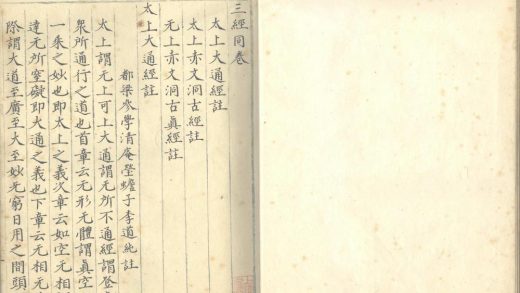 三經同卷
太上大通經註
太上赤文洞古經註
无上赤文洞古真經註
太上大通經註
都梁參學清庵瑩蟾子李道純註
太上謂无上可上大通謂无所不通經謂登
衆所通行之道也首章云无形无體謂真空
一乘之妙也即太上之義次章云如空无相
達无所窒礙即大通之義也下章云无相无
際謂大道至廣至大至妙无窮日用之間頭